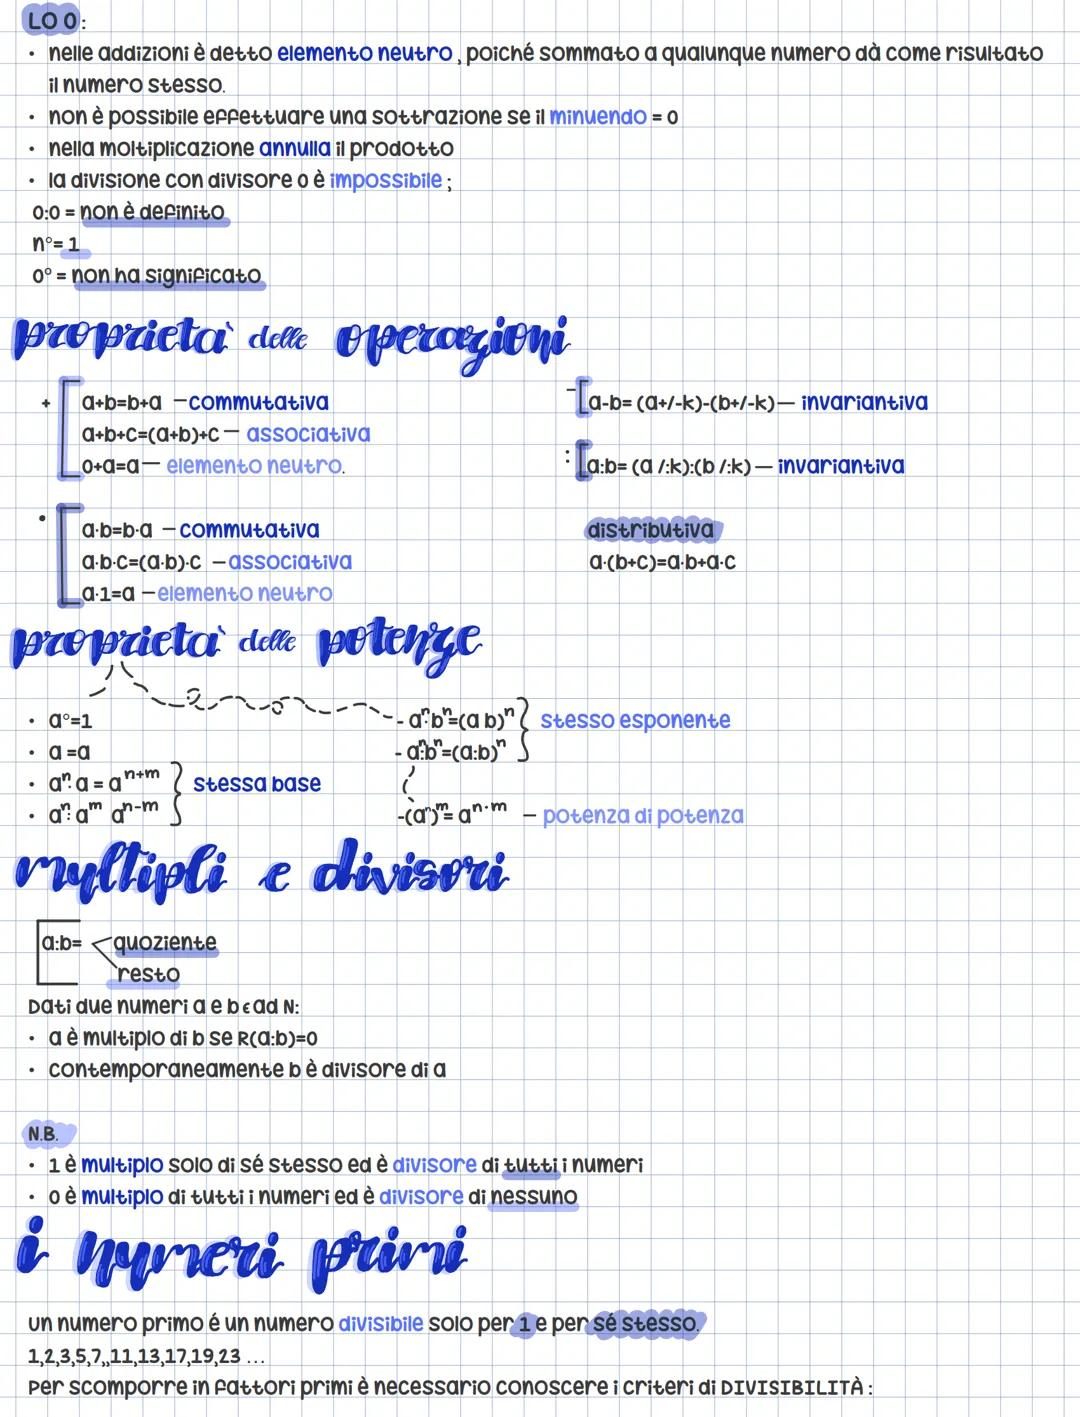 LO 0:
• nelle addizioni è detto elemento neutro, poiché sommato a qualunque numero dà come risultato
il numero stesso.
• non è possibile effettuare una sottrazione se il minuendo = 0
• nella moltiplicazione annulla il prodotto
• la divisione con divisore 0 è impossibile;
0:0 = non è definito
n°= 1
0° = non ha significato
proprietà delle operazioni
+ a+b=b+a — commutativa
a+b+c=(a+b)+c — associativa
0+a=a — elemento neutro.
- a-b= (a+/-k)-(b+/-k) — invariantiva
: a:b= (a /:k):(b /:k) — invariantiva
• a·b=b·a — commutativa
a·b·c=(a·b)·c — associativa
a·1=a — elemento neutro
distributiva
a·(b+c)=a·b+a·c
proprietà delle potenze
• a°=1
• a =a
• aⁿ· a = aⁿ⁺ᵐ
• aⁿ: aᵐ aⁿ⁻ᵐ
stessa base
- aⁿ·bⁿ=(a b)ⁿ
- aⁿ:bⁿ=(a:b)ⁿ
stesso esponente
-(aⁿ)ᵐ= aⁿ·ᵐ — potenza di potenza
multipli e divisori
a:b= quoziente
resto
Dati due numeri a e b ϵ ad N:
• a è multiplo di b se R(a:b)=0
• contemporaneamente b è divisore di a
N.B.
• 1 è multiplo solo di sé stesso ed è divisore di tutti i numeri
• 0 è multiplo di tutti i numeri ed è divisore di nessuno
i numeri primi
un numero primo é un numero divisibile solo per 1 e per sé stesso.
1,2,3,5,7,,11,13,17,19,23 ...
Per scomporre in fattori primi è necessario conoscere i criteri di DIVISIBILITÀ: